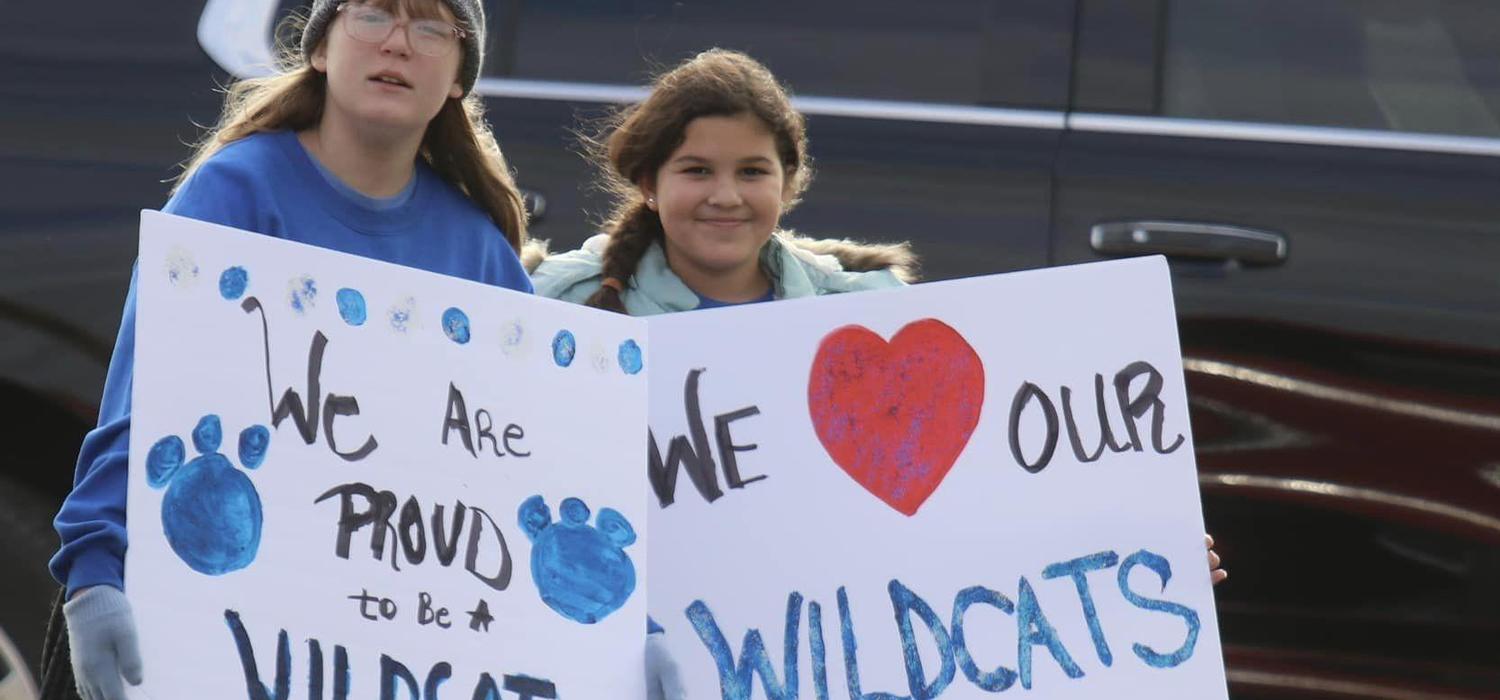 We Are
PROUD
to Be A
WILDCAT
WE ❤ OUR
WILDCATS